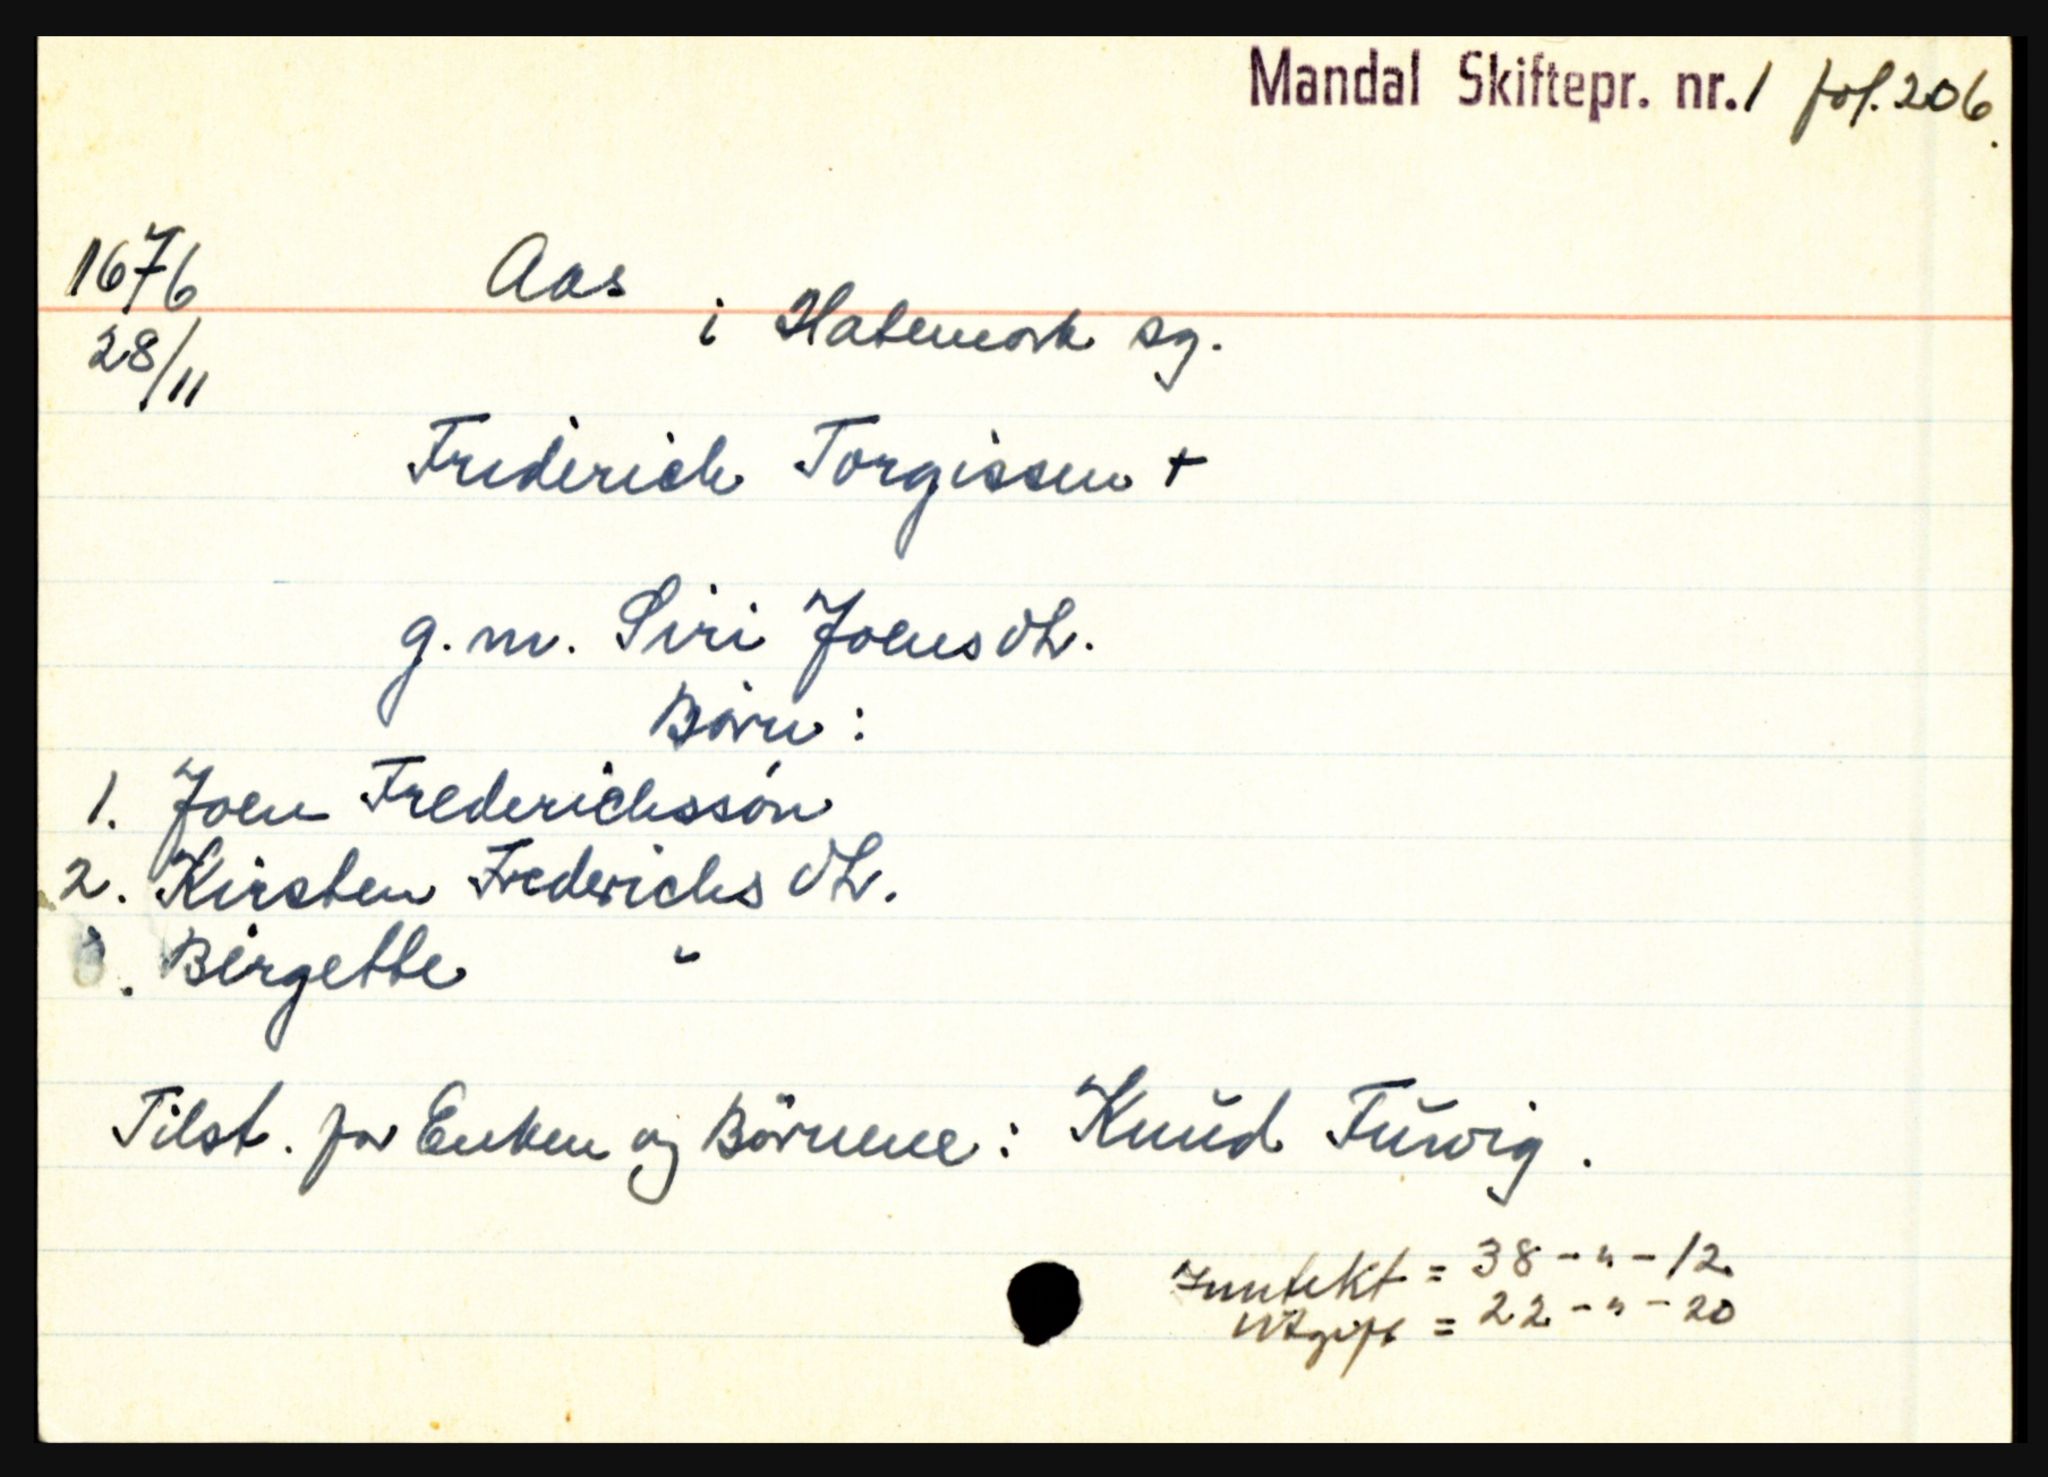 Mandal Skiftepr. nr. 1 fol. 206.
1676 Aas
i Hatemark sg.
28/11
Frederich Torgissen +
g.m. Siri Joens dtr.
Børn:
1. Joen Frederichssøn
2. Kirsten Frederichs dtr.
3. Birgette "
Tilst. for Enken og Børnene: Knud Fuvig.
Inntekt = 38 - " - 12
Utgift = 22 - " - 20